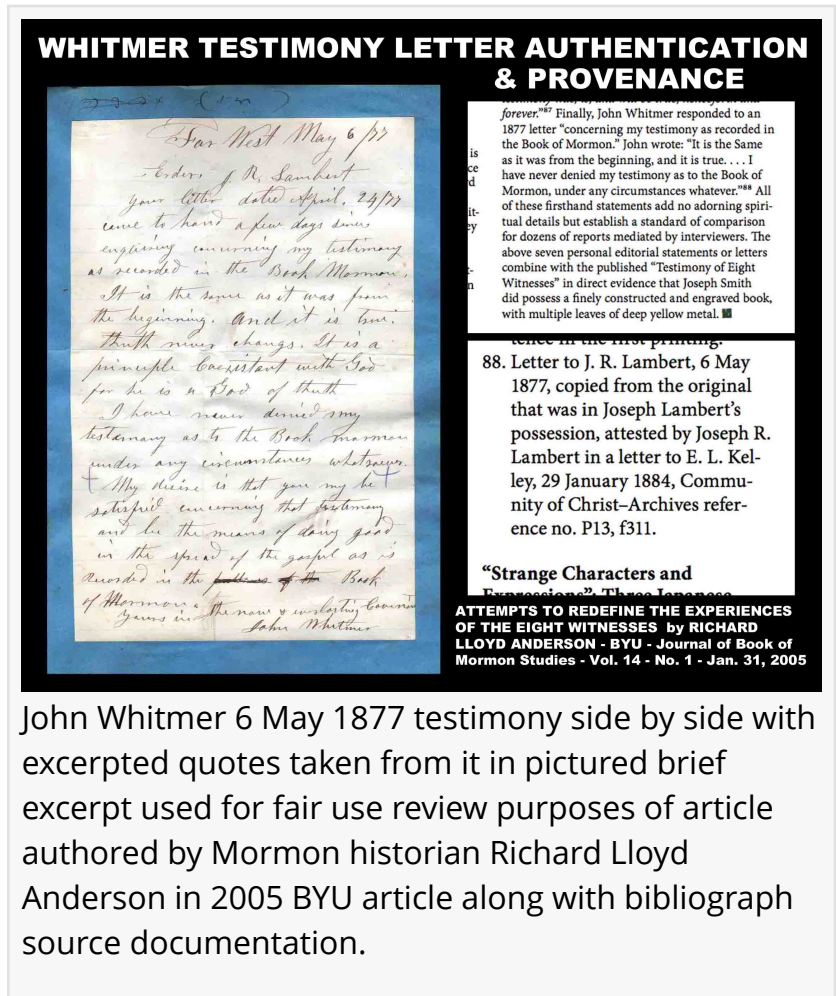 WHITMER TESTIMONY LETTER AUTHENTICATION
& PROVENANCE
Far West May 6/77
Elders J. R. Lambert
your letter dated April, 24/77
came to hand a few days sinss
enquiring concerning my testimony
as recorded in the Book Mormon,
It is the same as it was from
the beginning. And it is true.
thuth never changs. It is a
principle Coexistant with God
for he is a God of thuth
I have never denied my
testamony as to the Book mormon
under any circumstances whatsoever.
My desire is that you my be
satisfied concerning that testimony
and be the means of doing good
in the spread of the gospel as is
Recorded in the Book
of Mormon.
yours in the new & everlasting Covenant
John Whitmer
forever.”87 Finally, John Whitmer responded to an
1877 letter “concerning my testimony as recorded in
the Book of Mormon.” John wrote: “It is the Same
as it was from the beginning, and it is true. . . . I
have never denied my testimony as to the Book of
Mormon, under any circumstances whatever.”88 All
of these firsthand statements add no adorning spiri-
tual details but establish a standard of comparison
for dozens of reports mediated by interviewers. The
above seven personal editorial statements or letters
combine with the published “Testimony of Eight
Witnesses” in direct evidence that Joseph Smith
did possess a finely constructed and engraved book,
with multiple leaves of deep yellow metal.
is
ce
rd
it-
ey
t-
n
tence in the first printing.
88. Letter to J. R. Lambert, 6 May
1877, copied from the original
that was in Joseph Lambert’s
possession, attested by Joseph R.
Lambert in a letter to E. L. Kel-
ley, 29 January 1884, Commu-
nity of Christ–Archives refer-
ence no. P13, f311.
“Strange Characters and
Expressions”: Three Japanese
ATTEMPTS TO REDEFINE THE EXPERIENCES
OF THE EIGHT WITNESSES by RICHARD
LLOYD ANDERSON - BYU - Journal of Book of
Mormon Studies - Vol. 14 - No. 1 - Jan. 31, 2005
John Whitmer 6 May 1877 testimony side by side with
excerpted quotes taken from it in pictured brief
excerpt used for fair use review purposes of article
authored by Mormon historian Richard Lloyd
Anderson in 2005 BYU article along with bibliograph
source documentation.